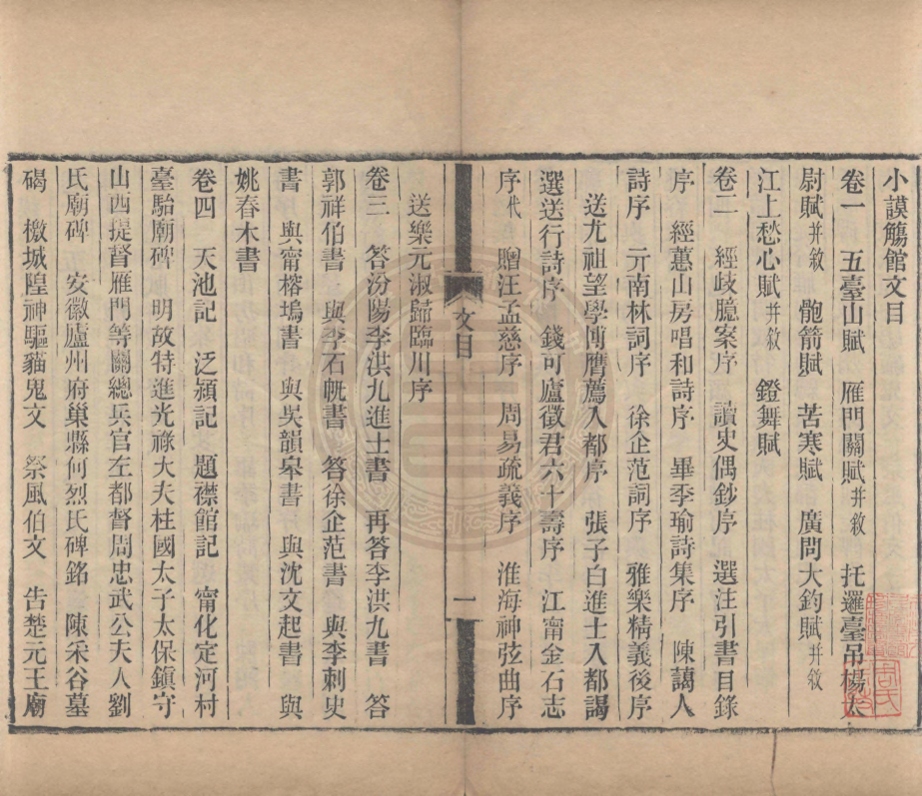 小謨觴館文目
卷一 五臺山賦 雁門關賦并敘 托邏臺吊楊太
尉賦并敘 骲箭賦 苦寒賦 廣問大鈞賦并敘
江上愁心賦并敘 鐙舞賦
卷二 經歧臆案序 讀史偶鈔序 選注引書目錄
序 經蕙山房唱和詩序 畢季瑜詩集序 陳藹人
詩序 亓南林詞序 徐企范詞序 雅樂精義後序
送尤祖望學博膺薦入都序 張子白進士入都謁
選送行詩序 錢可廬徵君六十壽序 江甯金石志
序代 贈汪孟慈序 周易疏義序 淮海神弦曲序
文目
一
送樂元淑歸臨川序
卷三 答汾陽李洪九進士書 再答李洪九書 答
郭祥伯書 與李石帆書 答徐企范書 與李刺史
書 與甯榕塢書 與吳韻皋書 與沈文起書 與
姚春木書
卷四 天池記 泛潁記 題襟館記 甯化定河村
臺駘廟碑 明故特進光祿大夫柱國太子太保鎮守
山西提督雁門等關總兵官左都督周忠武公夫人劉
氏廟碑 安徽廬州府巢縣何烈氏碑銘 陳采谷墓
碣 檄城隍神驅貓鬼文 祭風伯文 告楚元王廟